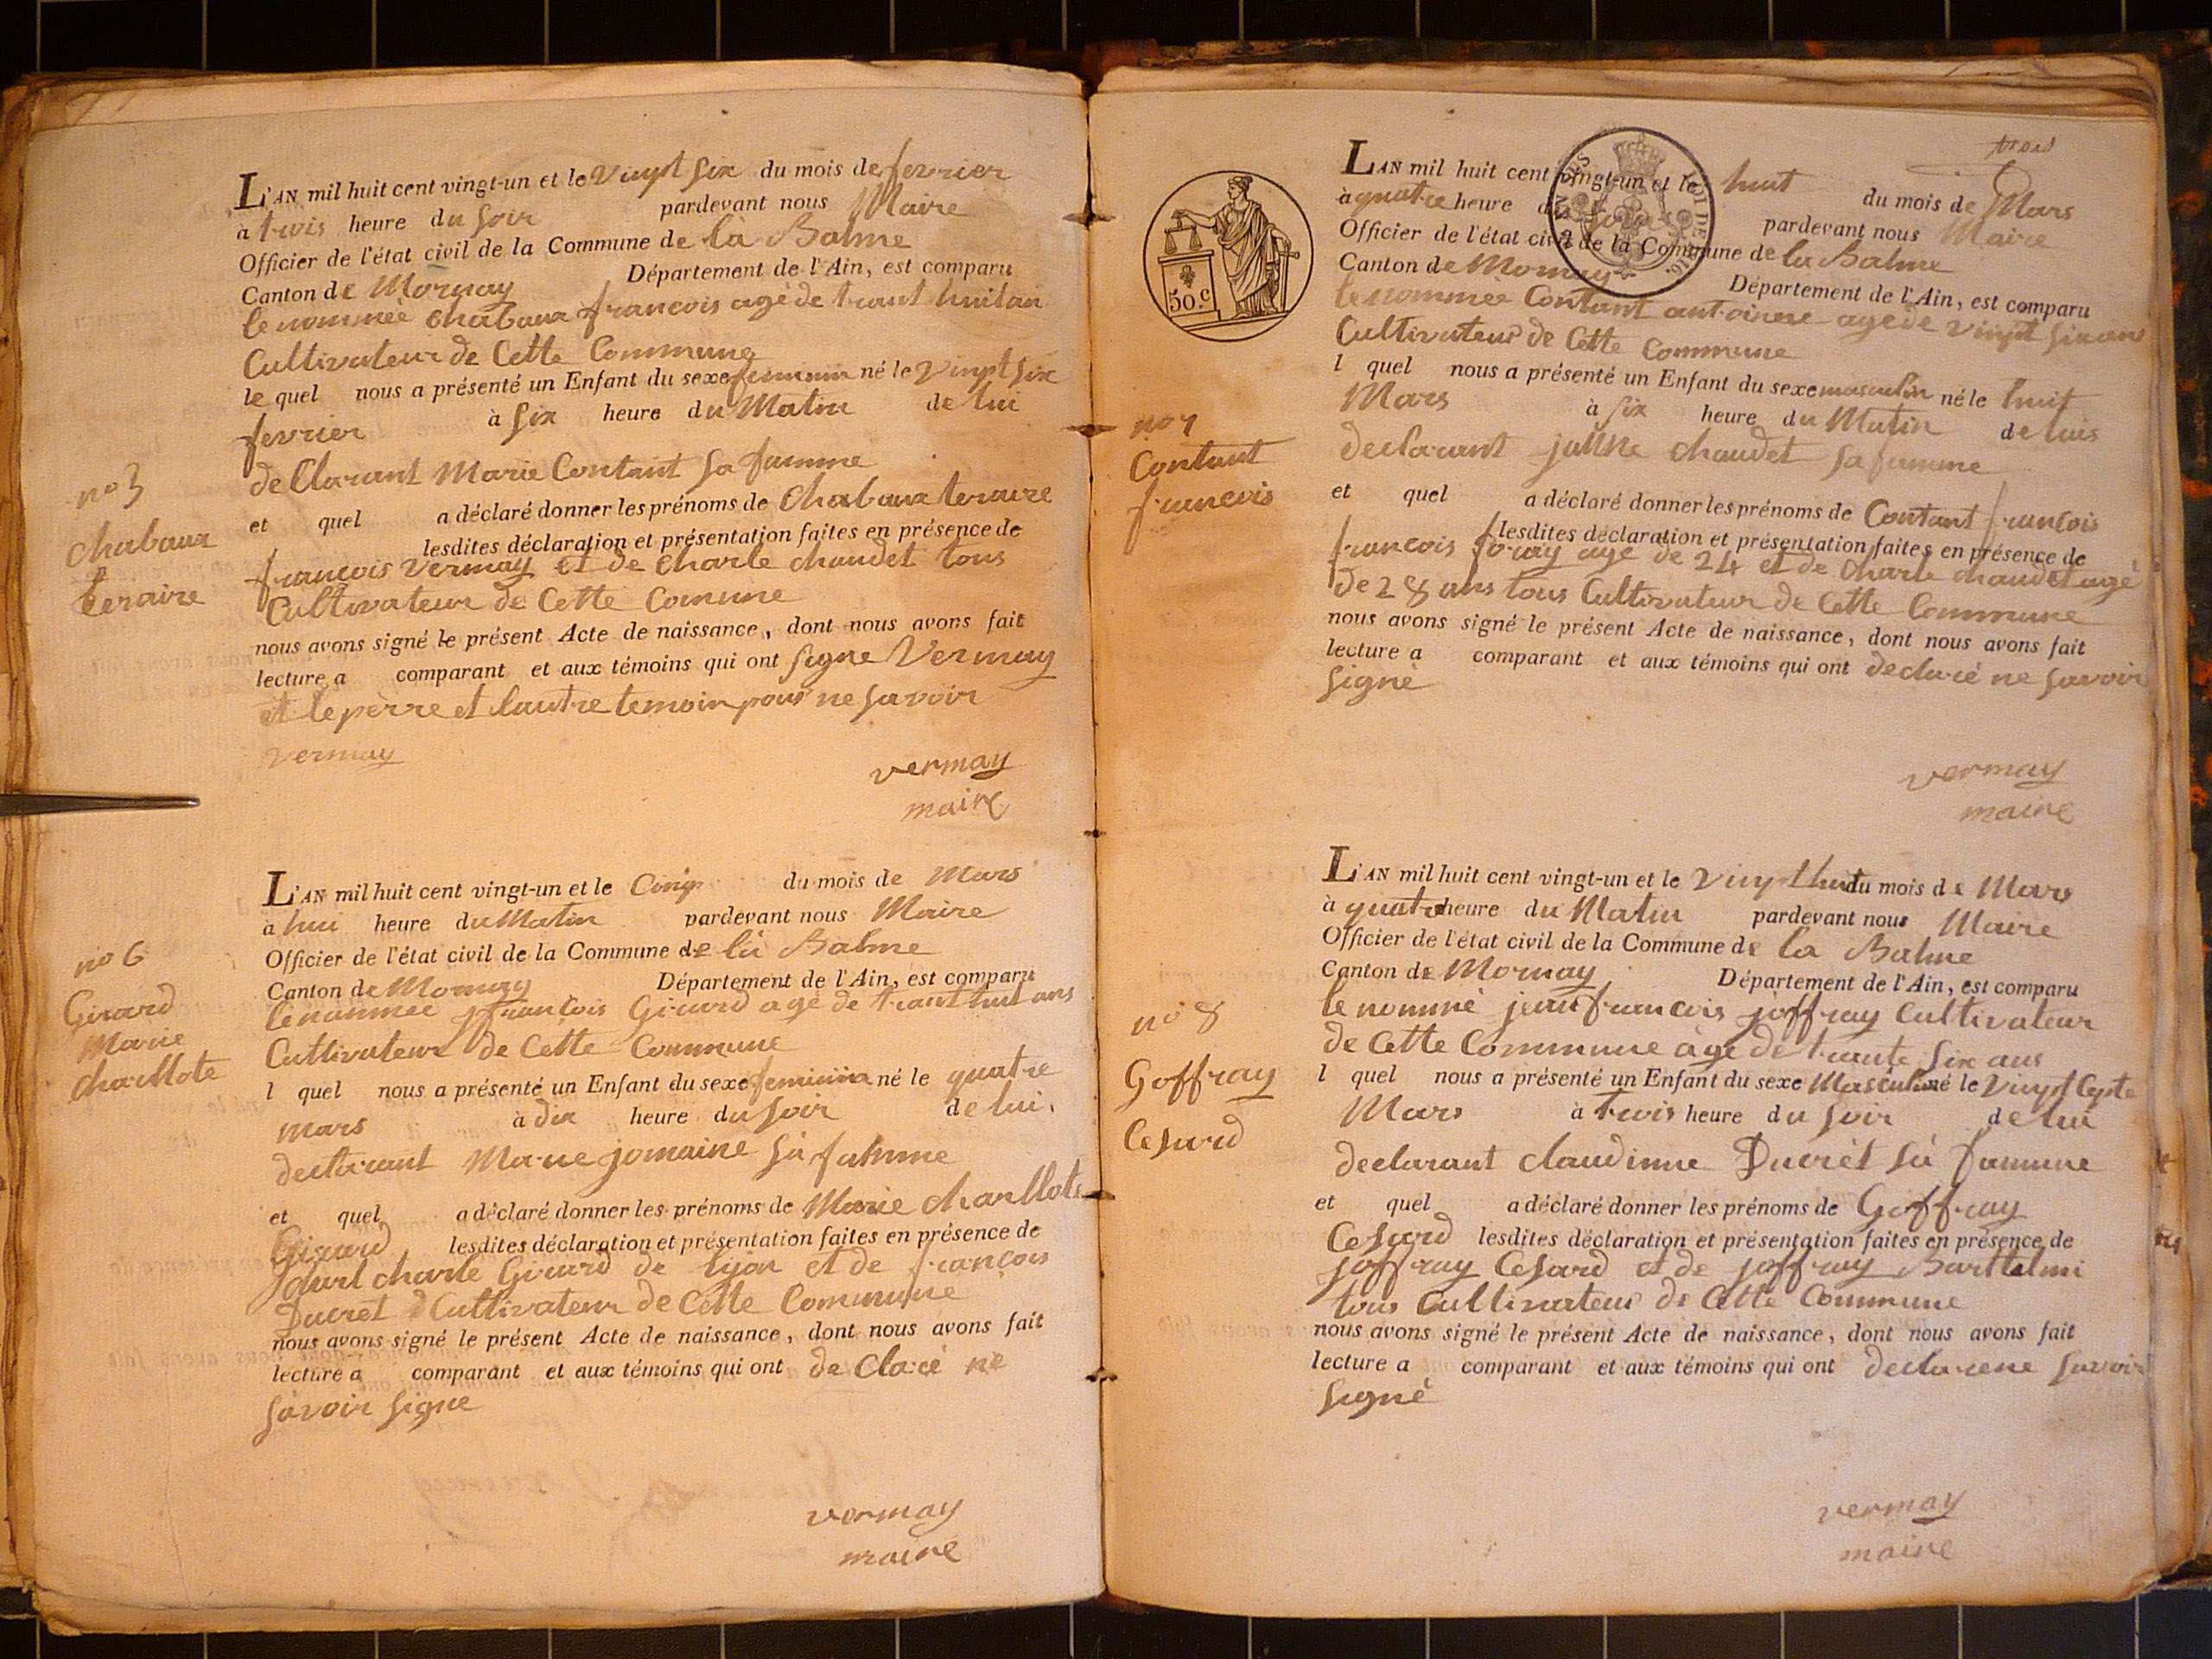 L'AN mil huit cent vingt-un et le vingt six du mois de fevrier
à trois heure du soir pardevant nous Maire
Officier de l'état civil de la Commune de la Balme
Canton de Mornay Département de l'Ain, est comparu
le nommée chabaux francois agé de trant huitan
Cultivateur de Cette Commune
le quel nous a présenté un Enfant du sexe feminin né le vingt six
fevrier à six heure du Matin de lui
de Clarant Marie Contant sa famme
et quel a déclaré donner les prénoms de Chabaux teraire
lesdites déclaration et présentation faites en présence de
francois vermay et de Charle chaudet tous
Cultivateur de Cette Comune
nous avons signé le présent Acte de naissance, dont nous avons fait
lecture a comparant et aux témoins qui ont signe Vermay
et le pèrre et lautre temoin pour ne savoir
vermay
vermay
maire
no 3
chabaux
teraire
L'AN mil huit cent vingt-un et le Cinq du mois de Mars
à hui heure du Matin pardevant nous Maire
Officier de l'état civil de la Commune de la Balme
Canton de Mornay Département de l'Ain, est comparu
le nommée francois Girard agé de trant huit ans
Cultivateur de Cette Commune
l quel nous a présenté un Enfant du sexe feminin né le quatre
mars à dix heure du soir de lui
declarant Marie jomaine sa famme
et quel a déclaré donner les prénoms de Marie charllote
Girard lesdites déclaration et présentation faites en présence de
charle Girard de lyon et de francois
Ducret Cultivateur de Cette Commune
nous avons signé le présent Acte de naissance, dont nous avons fait
lecture a comparant et aux témoins qui ont de Claré ne
savoir signe
vermay
maire
no 6
Girard
Marie
charllote
trois
L'AN mil huit cent vingt-un et le huit du mois de Mars
à quatre heure du soir pardevant nous Maire
Officier de l'état civil de la Commune de la Balme
Canton de Mornay Département de l'Ain, est comparu
le nommée Contant antoinne agé de vingt six ans
Cultivateur de Cette Commune
l quel nous a présenté un Enfant du sexe masculin né le huit
Mars à six heure du Matin de luis
declarant chaudet sa famme
et quel a déclaré donner les prénoms de Contant francois
lesdites déclaration et présentation faites en présence de
francois foray age de 24 et de Charle chaudet agé
de 28 ans tous Cultivateur de Cette Commune
nous avons signé le présent Acte de naissance, dont nous avons fait
lecture a comparant et aux témoins qui ont declaré ne savoir
signé
vermay
maire
50.c
no 7
Contant
francois
L'AN mil huit cent vingt-un et le vingt huit du mois de Mars
à quatre heure du Matin pardevant nous Maire
Officier de l'état civil de la Commune de la Balme
Canton de Mornay Département de l'Ain, est comparu
le nommé jean francois joffray Cultivateur
de Cette Commune agé de trante six ans
l quel nous a présenté un Enfant du sexe Masculin né le vingt Cepte
Mars à trois heure du soir de lui
declarant claudinne Ducrèt sa famme
et quel a déclaré donner les prénoms de Goffray
Cesard lesdites déclaration et présentation faites en présence de
joffray Cesard et de joffray Barttelmi
tous Cultivateur de Cette Commune
nous avons signé le présent Acte de naissance, dont nous avons fait
lecture a comparant et aux témoins qui ont declarene savoir
signé
vermay
maire
no 8
Goffray
Cesard